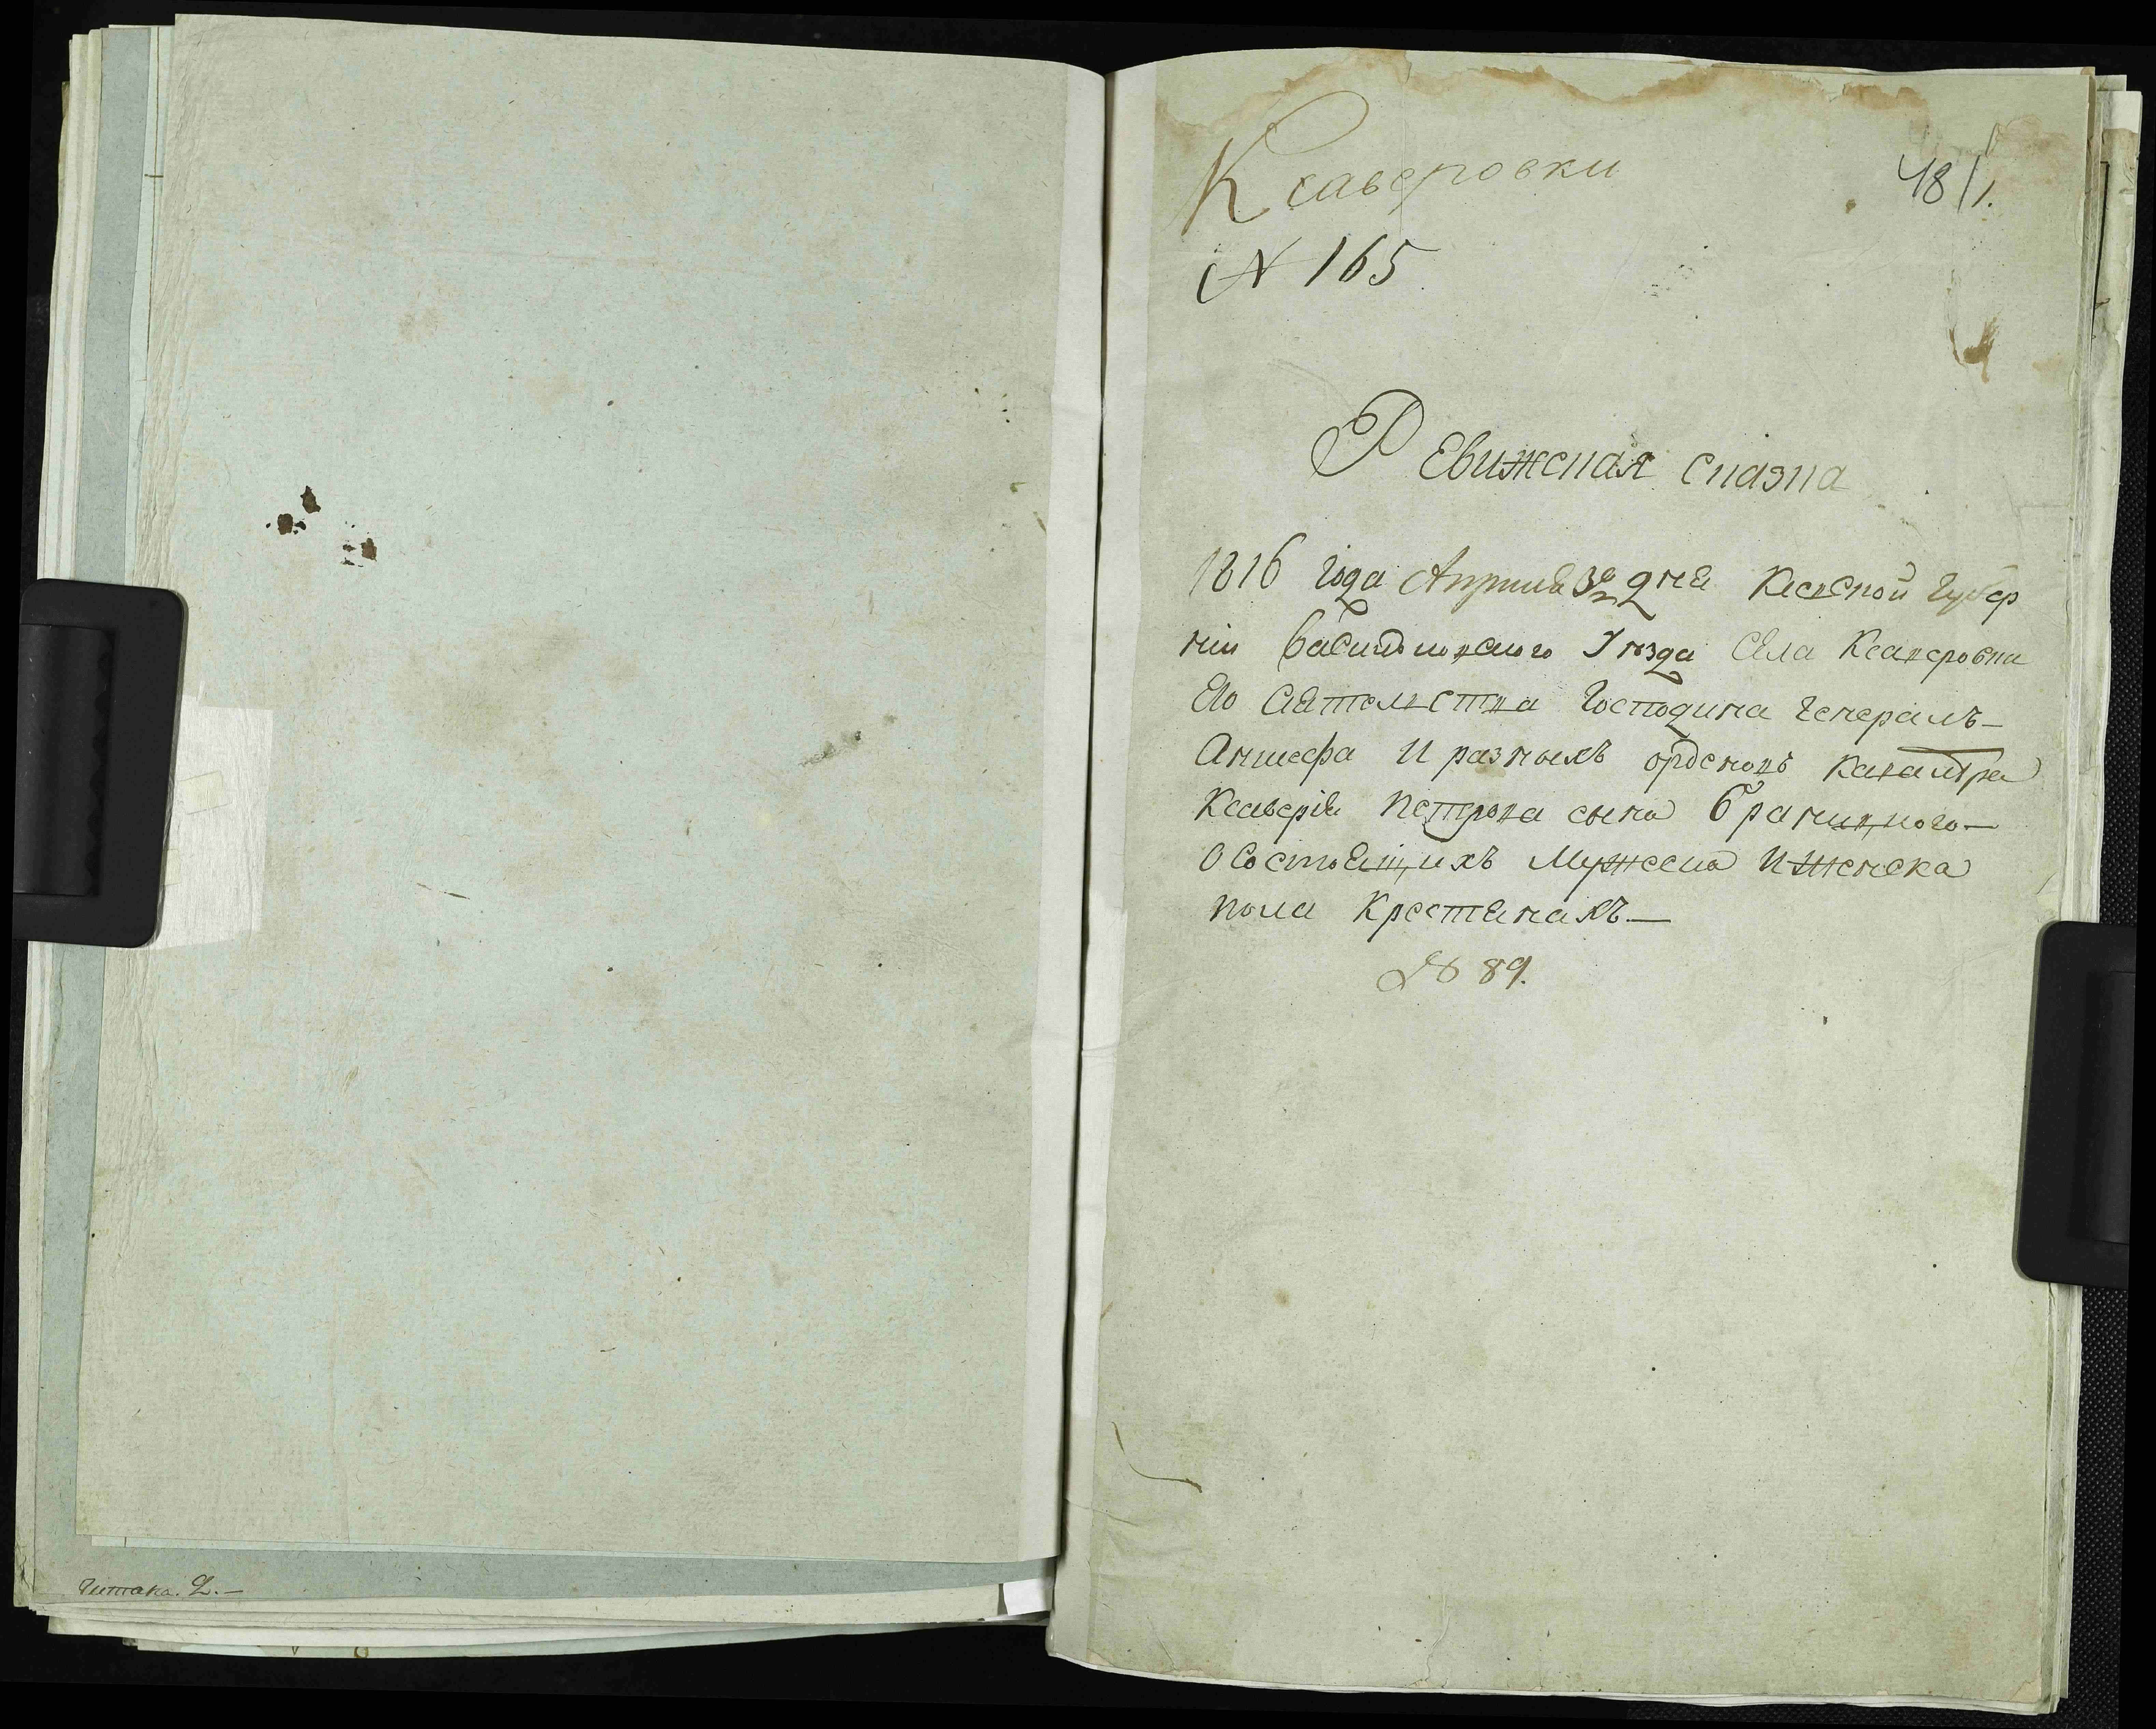 Ксаверовки
48/1.
N 165
Ревижская сказка
1816 года Априля 30 дня Киевской Губер
нии Васильковского Уезда Села Ксаверовки
Его Сиятельства Господина Генералъ-
Аншефа И разныхъ орденовъ Кавалѣра
Ксаверія Петрова сына Браницкого-
О Состоящихъ Мужеска И Женска
пола Крестянахъ-
№ 89.
Читака. 2.-